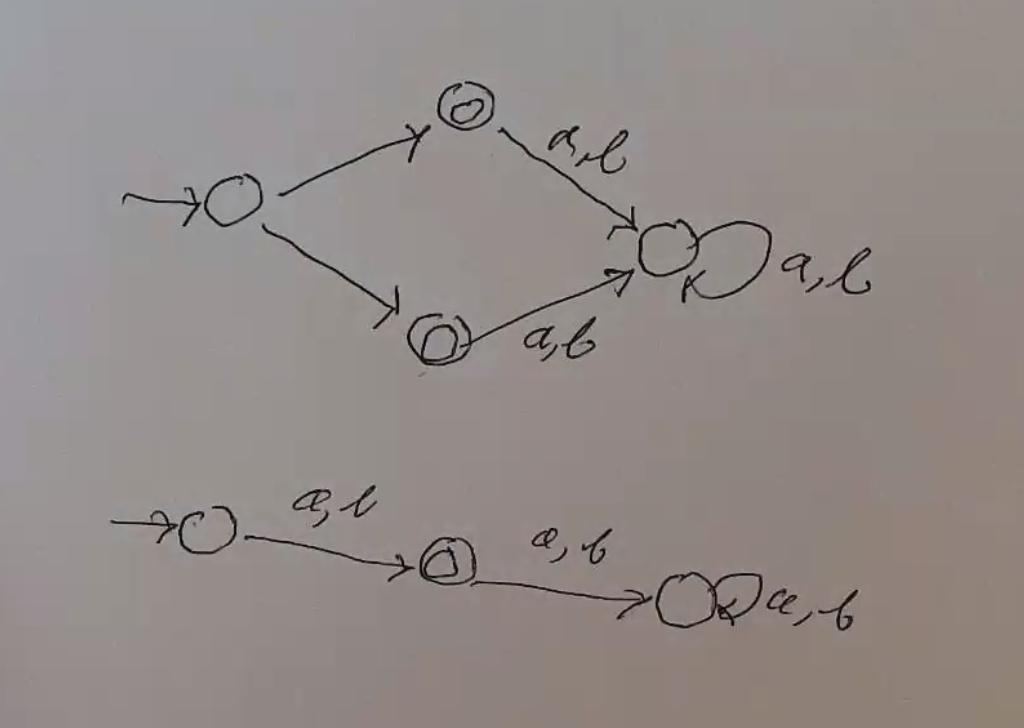 a,b
a,b
a,b
a,b
a,b
a,b